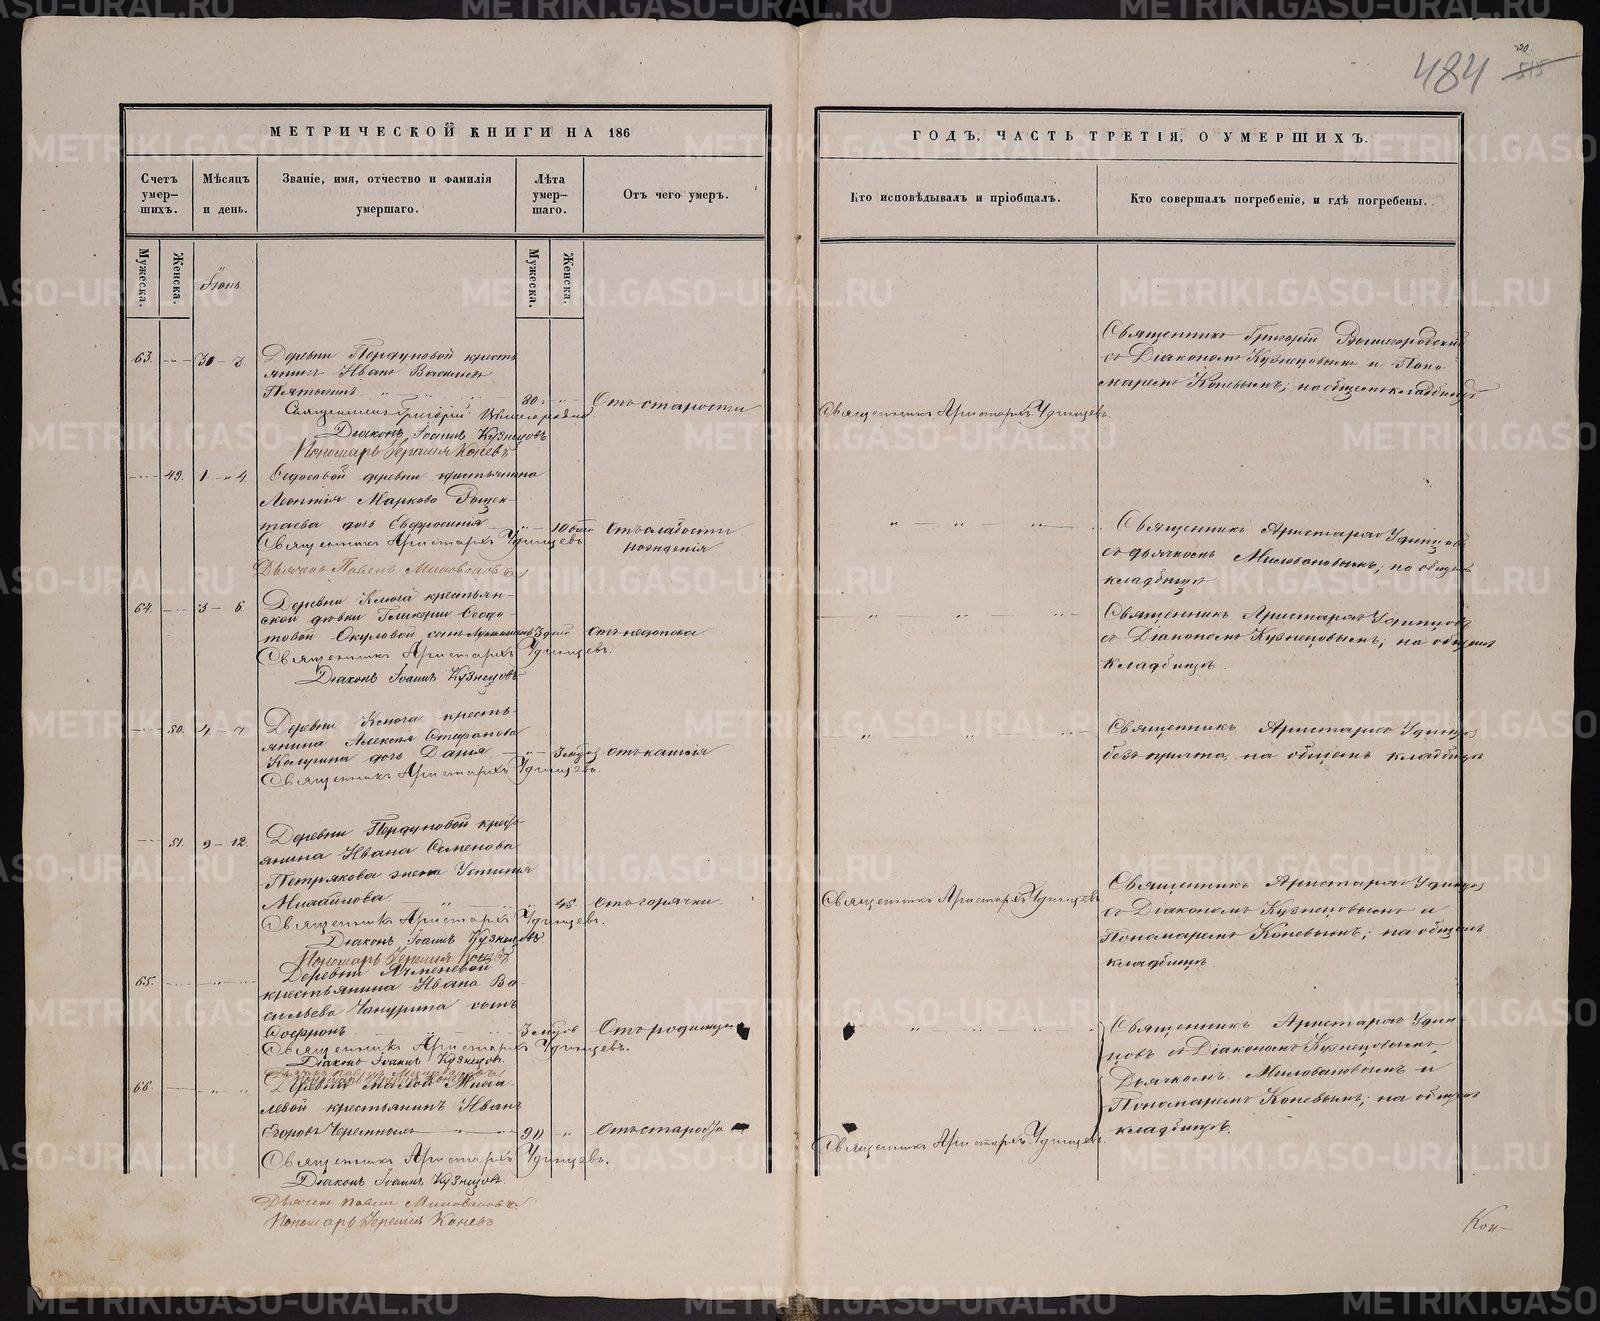 484
20.
515
МЕТРИЧЕСКОЙ КНИГИ НА 186
Счетъ умер-шихъ.
Мѣсяцъ и день.
Званіе, имя, отчество и фамилія умершаго.
Лѣта умер-шаго.
Отъ чего умеръ.
Мужеска.
Женска.
Мужеска.
Женска.
Іюнь
63. 30 - 3
Деревни Пердуновой кресть
янинъ Иванъ Васильевъ
Пятыгинъ
80
Отъ старости
Священникъ Григорій Вышегородскій
Діаконъ Іоаннъ Кузнецовъ
Пономарь Іеремія Коневъ
49. 1 - 4
Ѳедосовой деревни крестьянина
Леонтія Маркова
таева дочь Евфросинія
Отъ слабости
рожденія
Священникъ Аристархъ Удинцевъ
Дьячекъ Павелъ Миловановъ
64. 3 - 6
Деревни Ключа крестьян-
ской дѣвки Гликеріи Ѳедо-
товой Окуловой сынъ
3 дней
Священникъ Аристархъ Удинцевъ.
Діаконъ Іоаннъ Кузнецовъ
50. 4 - 7
Деревни Ключа кресть-
янина Алексѣя Стефанова
дочь Дарья
Отъ кашля
Священникъ Аристархъ Удинцевъ.
51. 9 - 12.
Деревни Пердуновой кресть-
янина Ивана Семенова
Петрякова жена Устинія
Михайлова
45
Отъ горячки
Священникъ Аристархъ Удинцевъ.
Діаконъ Іоаннъ Кузнецовъ
Пономарь Іеремія Коневъ
65.
Деревни Ячменевой
крестьянина Ивана Ва-
сильева Чапурина сынъ
Софронъ
Отъ родимца
Священникъ Аристархъ Удинцевъ.
Діаконъ Іоаннъ Кузнецовъ.
66.
Деревни Малой
левой крестьянинъ Иванъ
Егоровъ
90
Отъ старости
Священникъ Аристархъ Удинцевъ.
Діаконъ Іоаннъ Кузнецовъ
Дьячекъ Павелъ Миловановъ
Пономарь Іеремія Коневъ
ГОДЪ, ЧАСТЬ ТРЕТІЯ, О УМЕРШИХЪ.
Кто исповѣдывалъ и пріобщалъ.
Кто совершалъ погребеніе, и гдѣ погребены.
Священникъ Аристархъ Удинцевъ
Священникъ Григорій Вышегородскій
съ Діакономъ Кузнецовымъ и Поно-
маремъ Коневымъ; на общемъ кладбищѣ
Священникъ Аристархъ Удинцевъ
съ дьячкомъ Миловановымъ; на общемъ
кладбищѣ
Священникъ Аристархъ Удинцевъ
съ Діакономъ Кузнецовымъ; на общемъ
кладбищѣ.
Священникъ Аристархъ Удинцевъ
безъ причта, на общемъ кладбищѣ
Священникъ Аристархъ Удинцевъ
Священникъ Аристархъ Удинцевъ
съ Діакономъ Кузнецовымъ и
Пономаремъ Коневымъ; на общемъ
кладбищѣ.
Священникъ Аристархъ Удин
цовъ съ Діакономъ Кузнецовымъ,
Дьячкомъ Миловановымъ и
Пономаремъ Коневымъ; на общемъ
кладбищѣ.
Священникъ Аристархъ Удинцевъ.
Кон-
METRIKI.GASO-URAL.RU